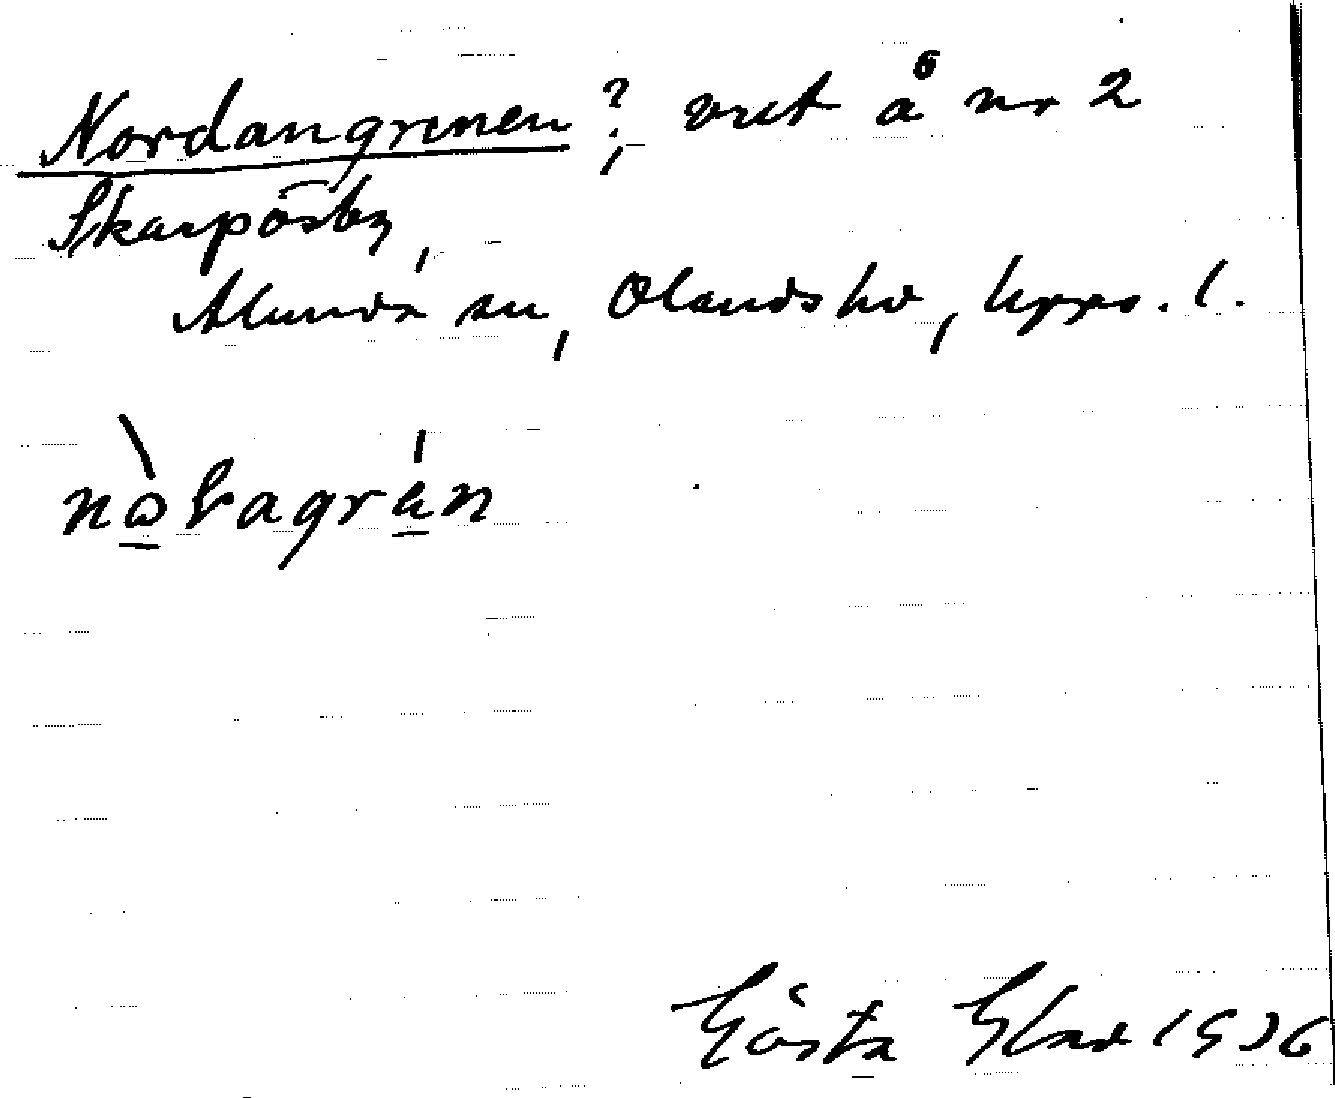 Nordangrinen?, vret å nr 2
Skarpösby,
Alunda sn, Olands hd, Upps. l.
Gösta 1936